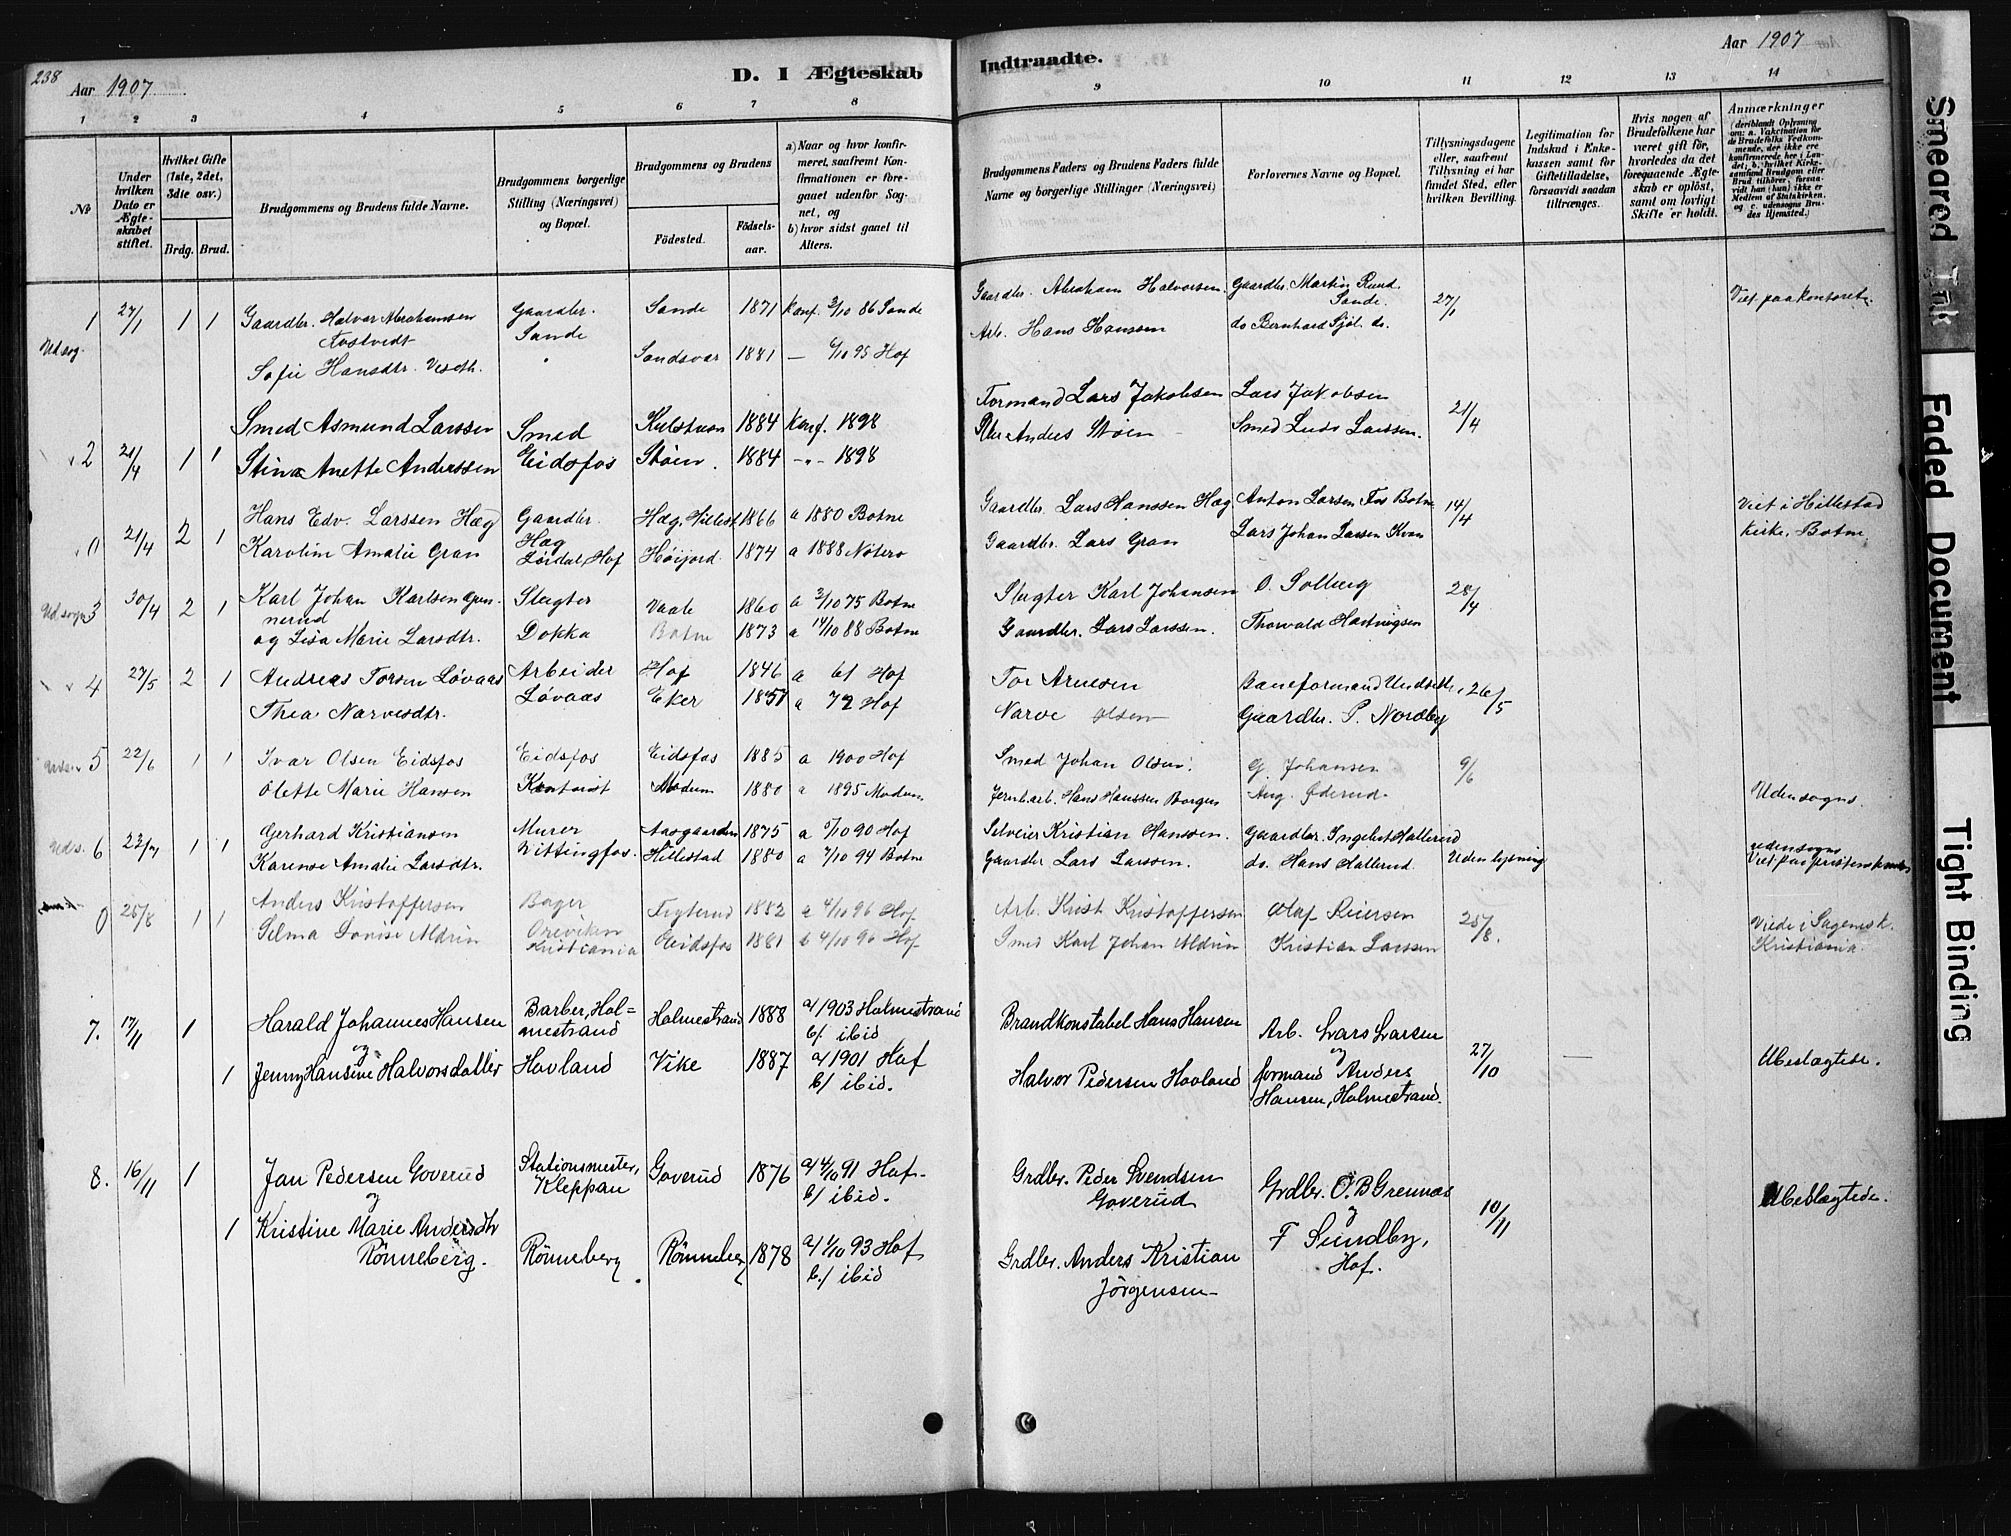 238
Aar 1907.
D. I Ægteskab
1 2 3 4 5 6 7 8
№
Under hvilken Dato er Ægteskabet stiftet.
Hvilket Gifte (1ste, 2det, 3die osv.)
Brdg. Brud.
Brudgommens og Brudens fulde Navne.
Brudgommens borgerlige Stilling (Næringsvei) og Bopæl.
Brudgommens og Brudens
Fødested. Fødselsaar.
a) Naar og hvor konfirmeret, saafremt Konfirmationen er foregaaet udenfor Sognet, og
b) hvor sidst gaaet til Alters.
1 27/1 1 1 Gaardbr. Halvor Abrahamsen Gaardbr. Sande 1871 Konf. 3/10 86 Sande
Sande
Udsog.
Sofie Hansdtr. Sandsvær 1881 — 6/10 95 Hof
Smed Asmund Larssen Smed 1884 Konf. 1898
2 21/4 1 1 Stina Anette Anderssen Eidsfos Støen. 1884 -"- 1898
Hans Edv. Larssen Hæg Gaardbr. Hæg, Hillest 1866 a 1880 Botne
0 21/4 2 1 Hæg
Karoline Amalie Gran Hof Høijord 1874 a 1888 Nøtterø
Karl Johan Karlsen Gunnerud Slagter Vaale 1860 a 3/10 75 Botne
Udsogn 3 30/4 2 1
og Lisa Marie Larsdtr. Dokka Botne 1873 a 14/10 88 Botne
4 27/5 2 1 Andreas Torsen Løvaas Arbeider Hof 1846 a 61 Hof
Thea Narvesdtr. Løvaas Eker 1857 a 72 Hof
5 22/6 1 1 Ivar Olsen Eidsfos Eidsfos Eidsfos 1885 a 1900 Hof
Olette Marie Hansen Kontorist Modum 1880 a 1895 Modum
Uds. 6 23/7 1 1 Gerhard Kristiansen Murer Aasgaarden 1875 a 5/10 90 Hof
Karense Amalie Larsdtr. Vittingfos. Hillestad 1880 a 7/10 94 Botne
Anders Kristoffersen Bager 1882 a 4/10 96 Hof
0 25/8 1 1
Selma Lovise Aldrin Kristiania Eidsfos 1881 b 4/10 96 Hof
7. 17/11 1 Harald Johannes Hansen Barber, Holmestrand Holmestrand 1888 a/ 1903 Holmestrand
b/ ibid
og
1 Jenny Hansine Halvorsdatter Hovland Vike 1887 a/ 1901 Hof
b/ ibid.
8. 16/11 1 Jan Pedersen Goverud Stationsmester, Kleppan Goverud 1876 a/ 4/10 91 Hof.
b/ ibid.
og
1 Kristine Marie Andersdtr Rönneberg. Rönneberg Rönneberg 1878 a/ 1/10 93 Hof
b./ ibid
Indtraadte.
Aar 1907
9 10 11 12 13 14
Brudgommens Faders og Brudens Faders fulde Navne og borgerlige Stillinger (Næringsvei)
Forlovernes Navne og Bopæl.
Tillysningsdagene eller, saafremt Tillysning ei har fundet Sted, efter hvilken Bevilling.
Legitimation for Indskud i Enkekassen samt for Giftetilladelse, forsaavidt saadan tiltrænges.
Hvis nogen af Brudefolkene har været gift før, hvorledes da det foregaaende Ægteskab er opløst, samt om lovligt Skifte er holdt.
Anmærkninger
(deriblandt Oplysning om: a. Vakcination for de Brudefolks Vedkommende, der ikke ere konfirmerede her i Landet; b. hvilket Kirkesamfund Brudgom eller Brud tilhører, forsaavidt han (hun) ikke er Medlem af Statskirken, og c. udensogns Brudes Hjemsted.)
Gaardbr. Abraham Halvorsen. Gaardbr. Martin Rud. Sande. 27/1 Viet paa Kontoret.
Arb. Hans Hanssen do Bernhard Sjöl do.
Formand Lars Jakobsen Lars Jakobsen 21/4
Anders Støen Smed Ludv Larssen.
Gaardbr. Lars Hanssen Hæg Anton Larsen Fos Botne 14/4 Viet i Hillestad
Gaardbr. Lars Gran Lars Johan Larsen Kvan Kirke, Botne.
Slagter Karl Johansen O. Solberg 28/4
Gaardbr. Lars Larssen. Thorvald Hartvigsen
Tor Arnesen Baneformand 26/5
Narve Olsen Gaardbr. P. Nordby
Smed Johan Olsen. G. Johansen 9/6
Jernarb. Hans Hanssen Borgen Aug. Øderud Udensogns.
Kristian Hanssen. Gaardbr. Ingebret Hallerud
Gaardbr Lars Larssen. do. Hans Hallerud. Uden lysning udensogns
Arb. Krist Kristoffersen Olaf Reiersen 25/8. Viede i Sagenes k.
Smed Karl Johan Aldrin Kristian Larssen Kristiania.
Brandkonstabel Hans Hansen Arb. Lars Larsen
og
Halvor Pedersen Hovland formand Anders Hansen, Holmestrand. 27/10 — Ubeslægtede.
Grdbr. Peder Svendsen Goverud Grdbr. O. B Grennes
og 10/11 Ubeslægtede.
F Sundby, Hof.
Grdbr. Anders Kristian Jörgensen
Smeared Ink
Faded Document
Tight Binding